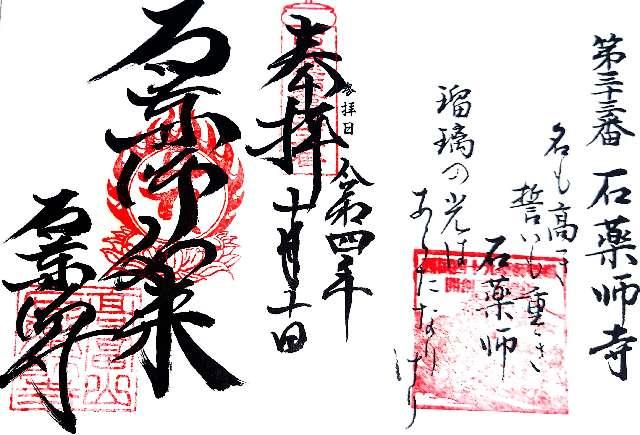 第三十三番 石薬師寺
名も高き
誓いも重き
石薬師
瑠璃の光は
あらたなりけり
奉拝
参拝日
令和四年
十月十一日
石薬師如来
石薬師寺